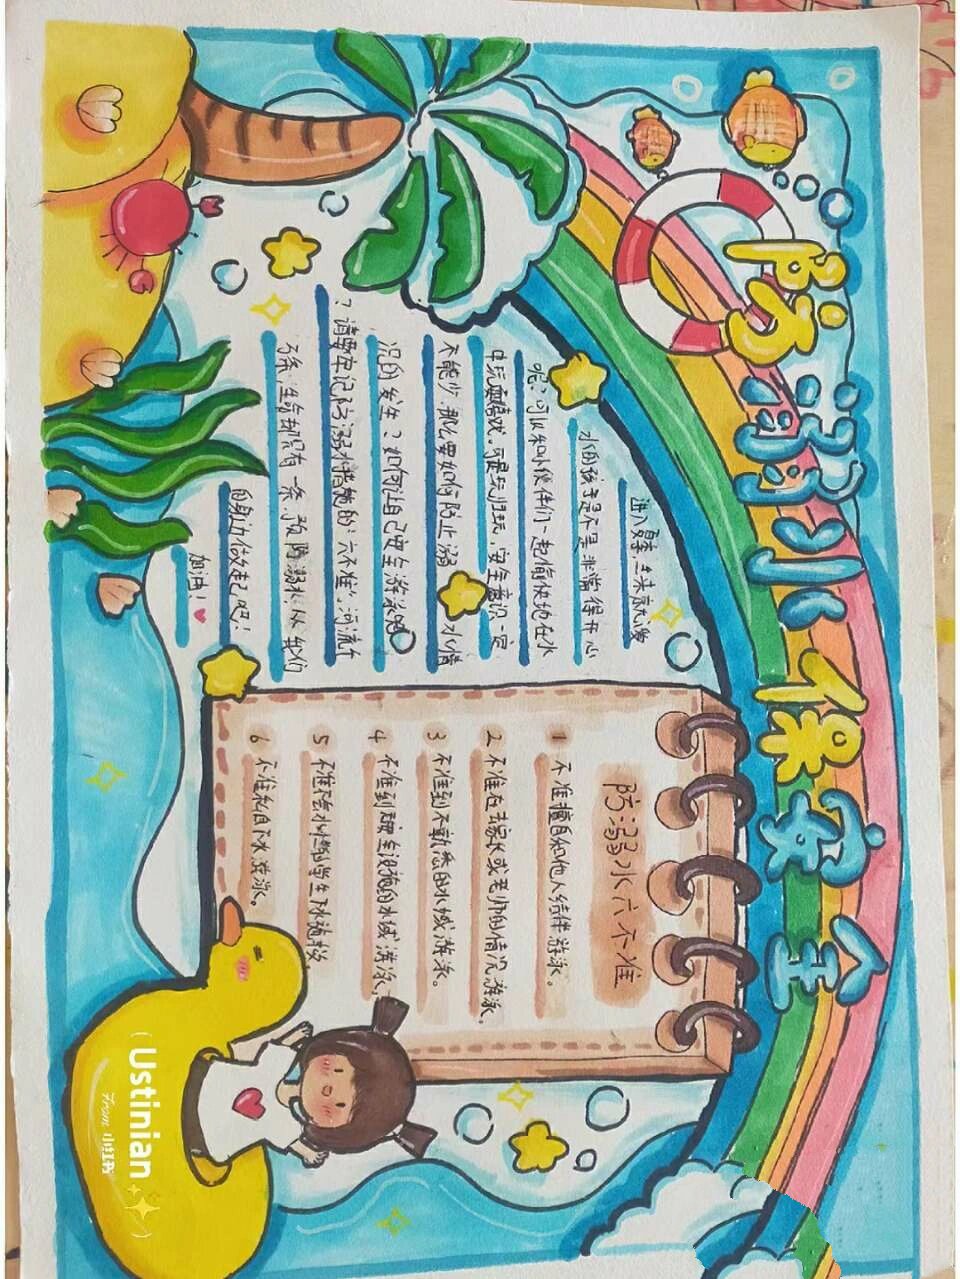 防溺水保安全
进入夏季,
水的孩子是不是非常得开心
呢?可以和小伙伴们一起愉快地在水
中玩耍嬉戏。可是玩归玩,安全意识一定
不能少.那么要如何防止溺水情
况的发生?如何让自己安全游泳呢
?请要牢记防溺水措施的"六不准".河流千
万条,生命却只有一条.预防溺水!从我们
的身边做起吧!
加油!
防溺水六不准
1 不准擅自和他人结伴游泳。
2 不准在无家长或老师的情况游泳。
3 不准到不熟悉的水域游泳。
4 不准到无安全设施的水域游泳
5 不准不会水性的学生下水施救.
6 不准私自下水游泳。
(Ustinian
From 小红书